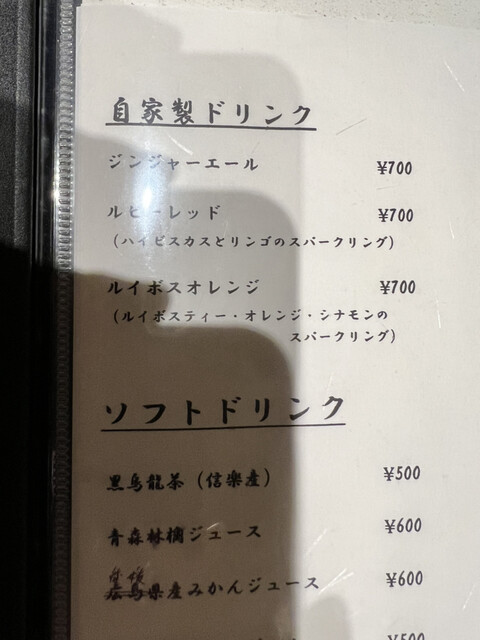 自家製ドリンク
ジンジャーエール ¥700
ルビーレッド ¥700
(ハイビスカスとリンゴのスパークリング)
ルイボスオレンジ ¥700
(ルイボスティー・オレンジ・シナモンの
スパークリング)
ソフトドリンク
黒烏龍茶(信楽産) ¥500
青森林檎ジュース ¥600
県産みかんジュース ¥600
¥500